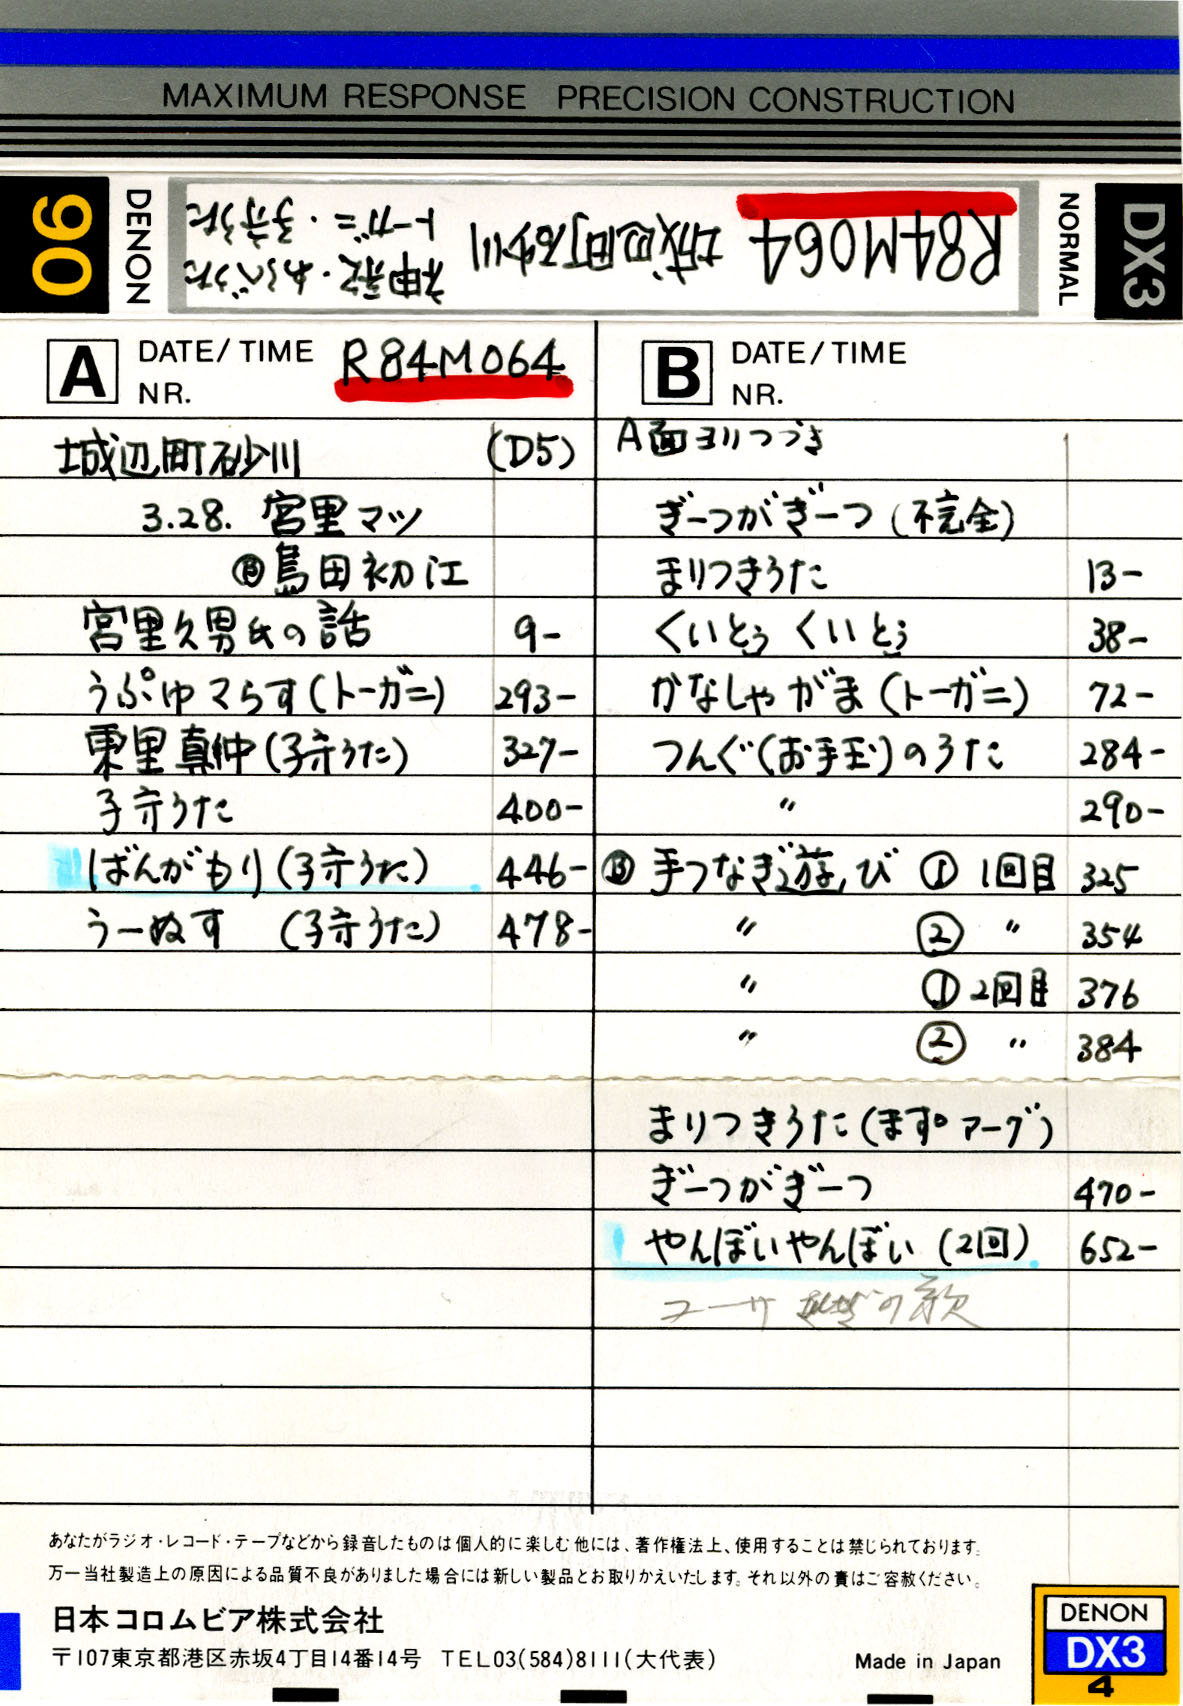 MAXIMUM RESPONSE PRECISION CONSTRUCTION
90
DENON
R84M064 城辺町砂川
神歌・わらべうた
トーガニ・子守うた
NORMAL
DX3
A DATE/TIME R84M064
NR.
城辺町砂川 (D5)
3.28. 宮里マツ
島田初江
宮里久男氏の話 9-
うぷゆマらす(トーガニ) 293-
東里真仲(子守うた) 327-
子守うた 400-
ばんがもり(子守うた) 446-
うーぬす (子守うた) 478-
B DATE/TIME
NR.
A面ヨリつづき
ぎーつがぎーつ (不完全)
まりつきうた 13-
くいとぅ くいとぅ 38-
かなしゃがま(トーガニ) 72-
つんぐ(お手玉)のうた 284-
〃 290-
手つなぎ遊び ① 1回目 325
〃 ② 〃 354
〃 ① 2回目 376
〃 ② 〃 384
まりつきうた(ます゜アーグ)
ぎーつがぎーつ 470-
やんぼいやんぼい (2回) 652-
ユーサ の歌
あなたがラジオ・レコード・テープなどから録音したものは個人的に楽しむ他には、著作権法上、使用することは禁じられております。
万一当社製造上の原因による品質不良がありました場合には新しい製品とお取りかえいたします。それ以外の責はご容赦ください。
日本コロムビア株式会社
〒107東京都港区赤坂4丁目14番14号 TEL03(584)8111(大代表)
Made in Japan
DENON
DX3
4